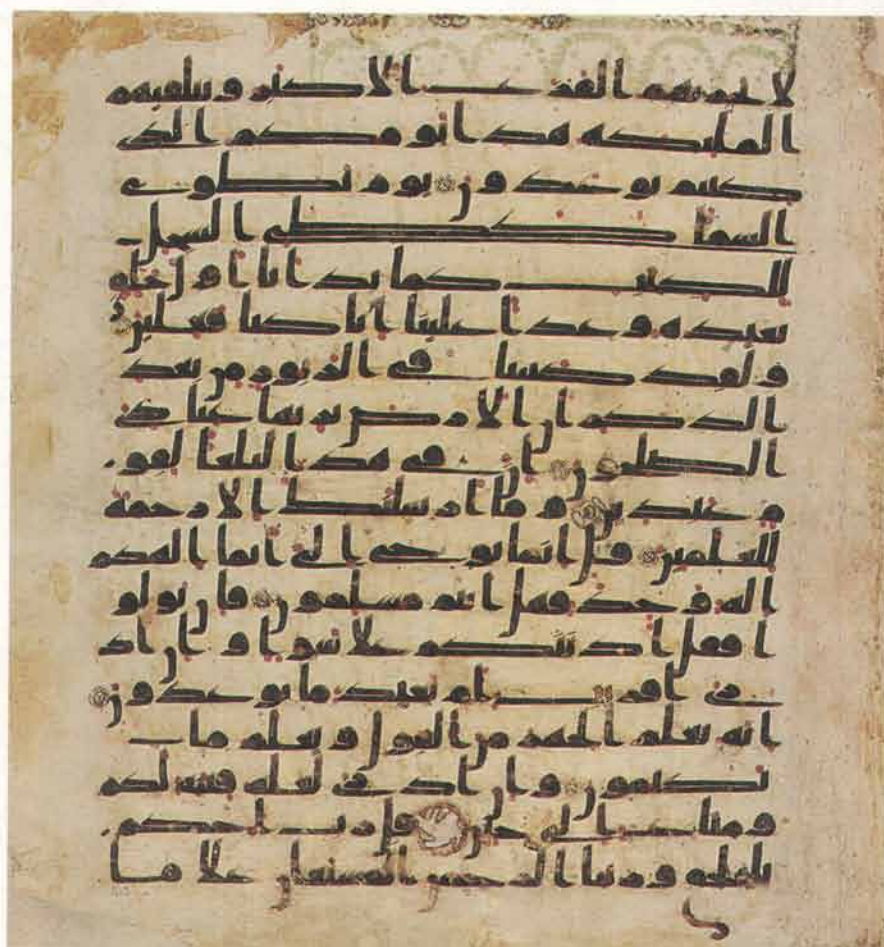 لا يحزنهم الفزع الاكبر وتتلقيهم
الملىكه هذا يومكم الذي
كنتم توعدون يوم نطوي
السما كطي السجل
للكتب كما بدانا اول خلق
نعيده وعدا علينا انا كنا فعلين
ولقد كتبنا في الزبور من بعد
الذكر ان الارض يرثها عبادي
الصلحون ان في هذا لبلغا لقو
م عبدين وما ارسلنك الا رحمة
للعلمين قل انما يوحى الي انما الهكم
اله وحد فهل انتم مسلمون فان تولو
ا فقل اذنتكم علا سوا وان اد
ري اقريب ام بعيد ما توعدون
انه يعلم الجهر من القول ويعلم ما
تكتمون وان ادري لعله فتنه لكم
ومتاع الى حين قل رب احكم
بالحق وربنا الرحمن المستعان علا ما